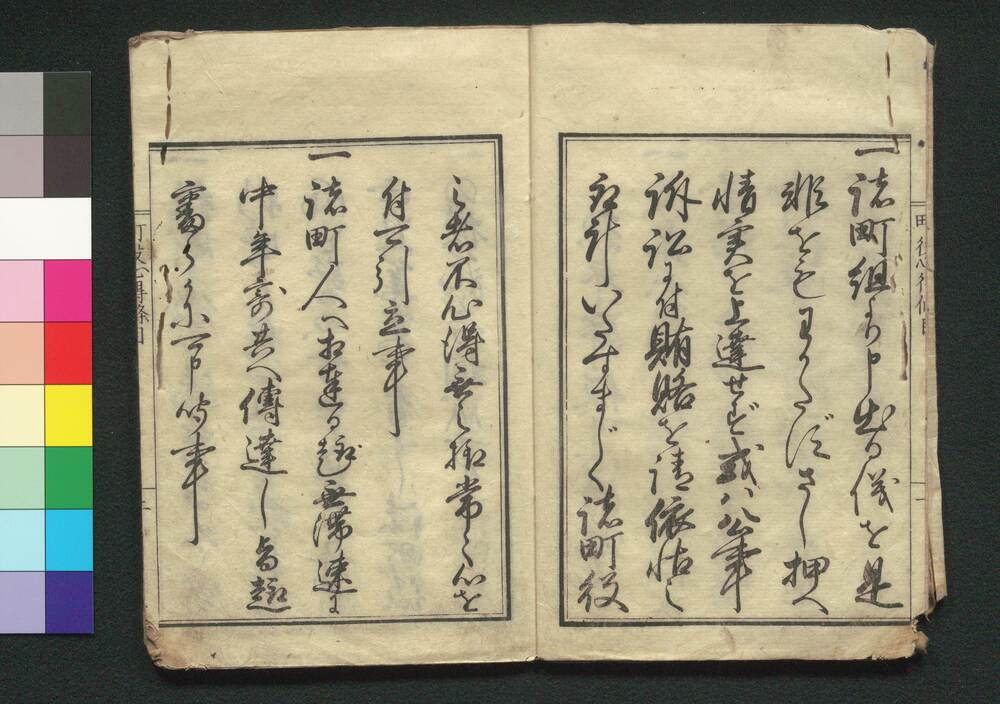 一
諸町組より申出る儀を是
非をもわかたずさし押へ
情実を上達せず或ハ公事
訴訟ニ付賄賂を請依怙之
取計いたすまじく諸町役
之者不心得無之様常々心を
付可引立事
一
諸町人へ相達る趣無滞速ニ
中年寄共へ傳達し尚趣
審らかに可申聞事
町役心得條目